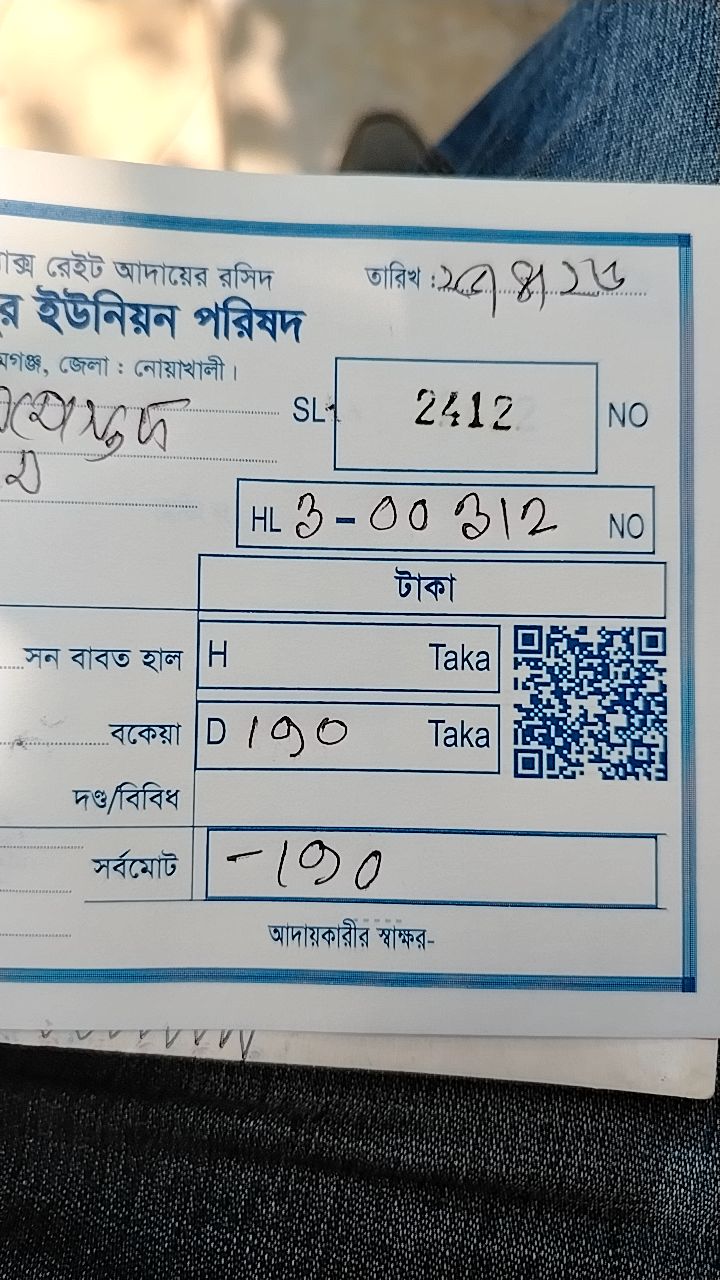 ক্স রেইট আদায়ের রসিদ তারিখ :
র ইউনিয়ন পরিষদ
মগঞ্জ, জেলা : নোয়াখালী।
SL 2412 NO
HL 3-00312 NO
টাকা
সন বাবত হাল H Taka
বকেয়া D 190 Taka
দণ্ড/বিবিধ
সর্বমোট -190
আদায়কারীর স্বাক্ষর-